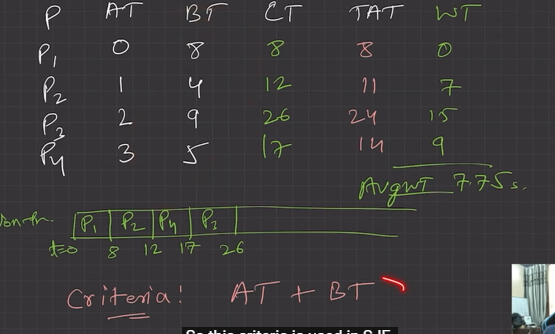 P AT BT CT TAT WT
P1 0 8 8 8 0
P2 1 4 12 11 7
P3 2 9 26 24 15
P4 3 5 17 14 9
AvgWT 7.75 s.
P1 P2 P4 P3
t=0 8 12 17 26
Criteria! AT + BT
So this criteria is used in SJF